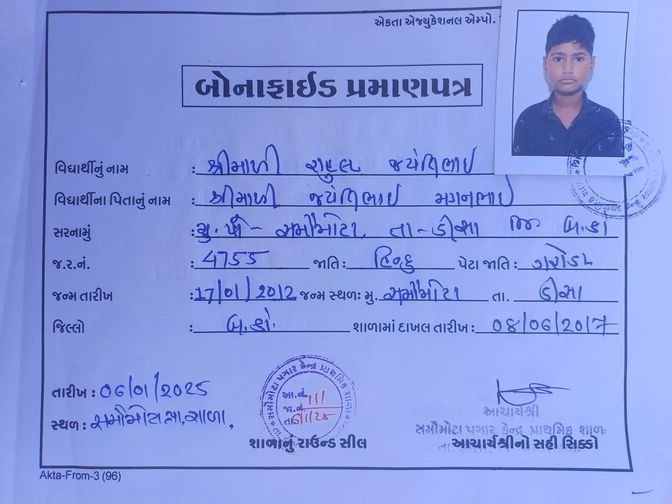 એકતા એજ્યુકેશનલ એમ્પો.
બોનાફાઈડ પ્રમાણપત્ર
વિદ્યાર્થીનું નામ : શ્રીમાળી રાહુલ જયંતિભાઇ
વિદ્યાર્થીના પિતાનું નામ : શ્રીમાળી જયંતિભાઇ મગનભાઇ
સરનામું : મુ. પો - સમૌમોટા, તા - ડીસા જિ બ.કાં
જ.ર.નં. : 4755 જાતિ : હિન્દુ પેટા જાતિ : ગરોડા
જન્મ તારીખ : 17/01/2012 જન્મ સ્થળ : મુ. સમૌમોટા તા. ડીસા
જિલ્લો : બ.કાં. શાળામાં દાખલ તારીખ : 08/06/2017
તારીખ : 06/01/2025
સ્થળ : સમૌમોટા શાળા.
આચાર્યશ્રી
સમૌમોટા પગાર કેન્દ્ર પ્રાથમિક શાળા
શાળાનું રાઉન્ડ સીલ આચાર્યશ્રીનો સહી સિક્કો
Akta-From-3 (96)